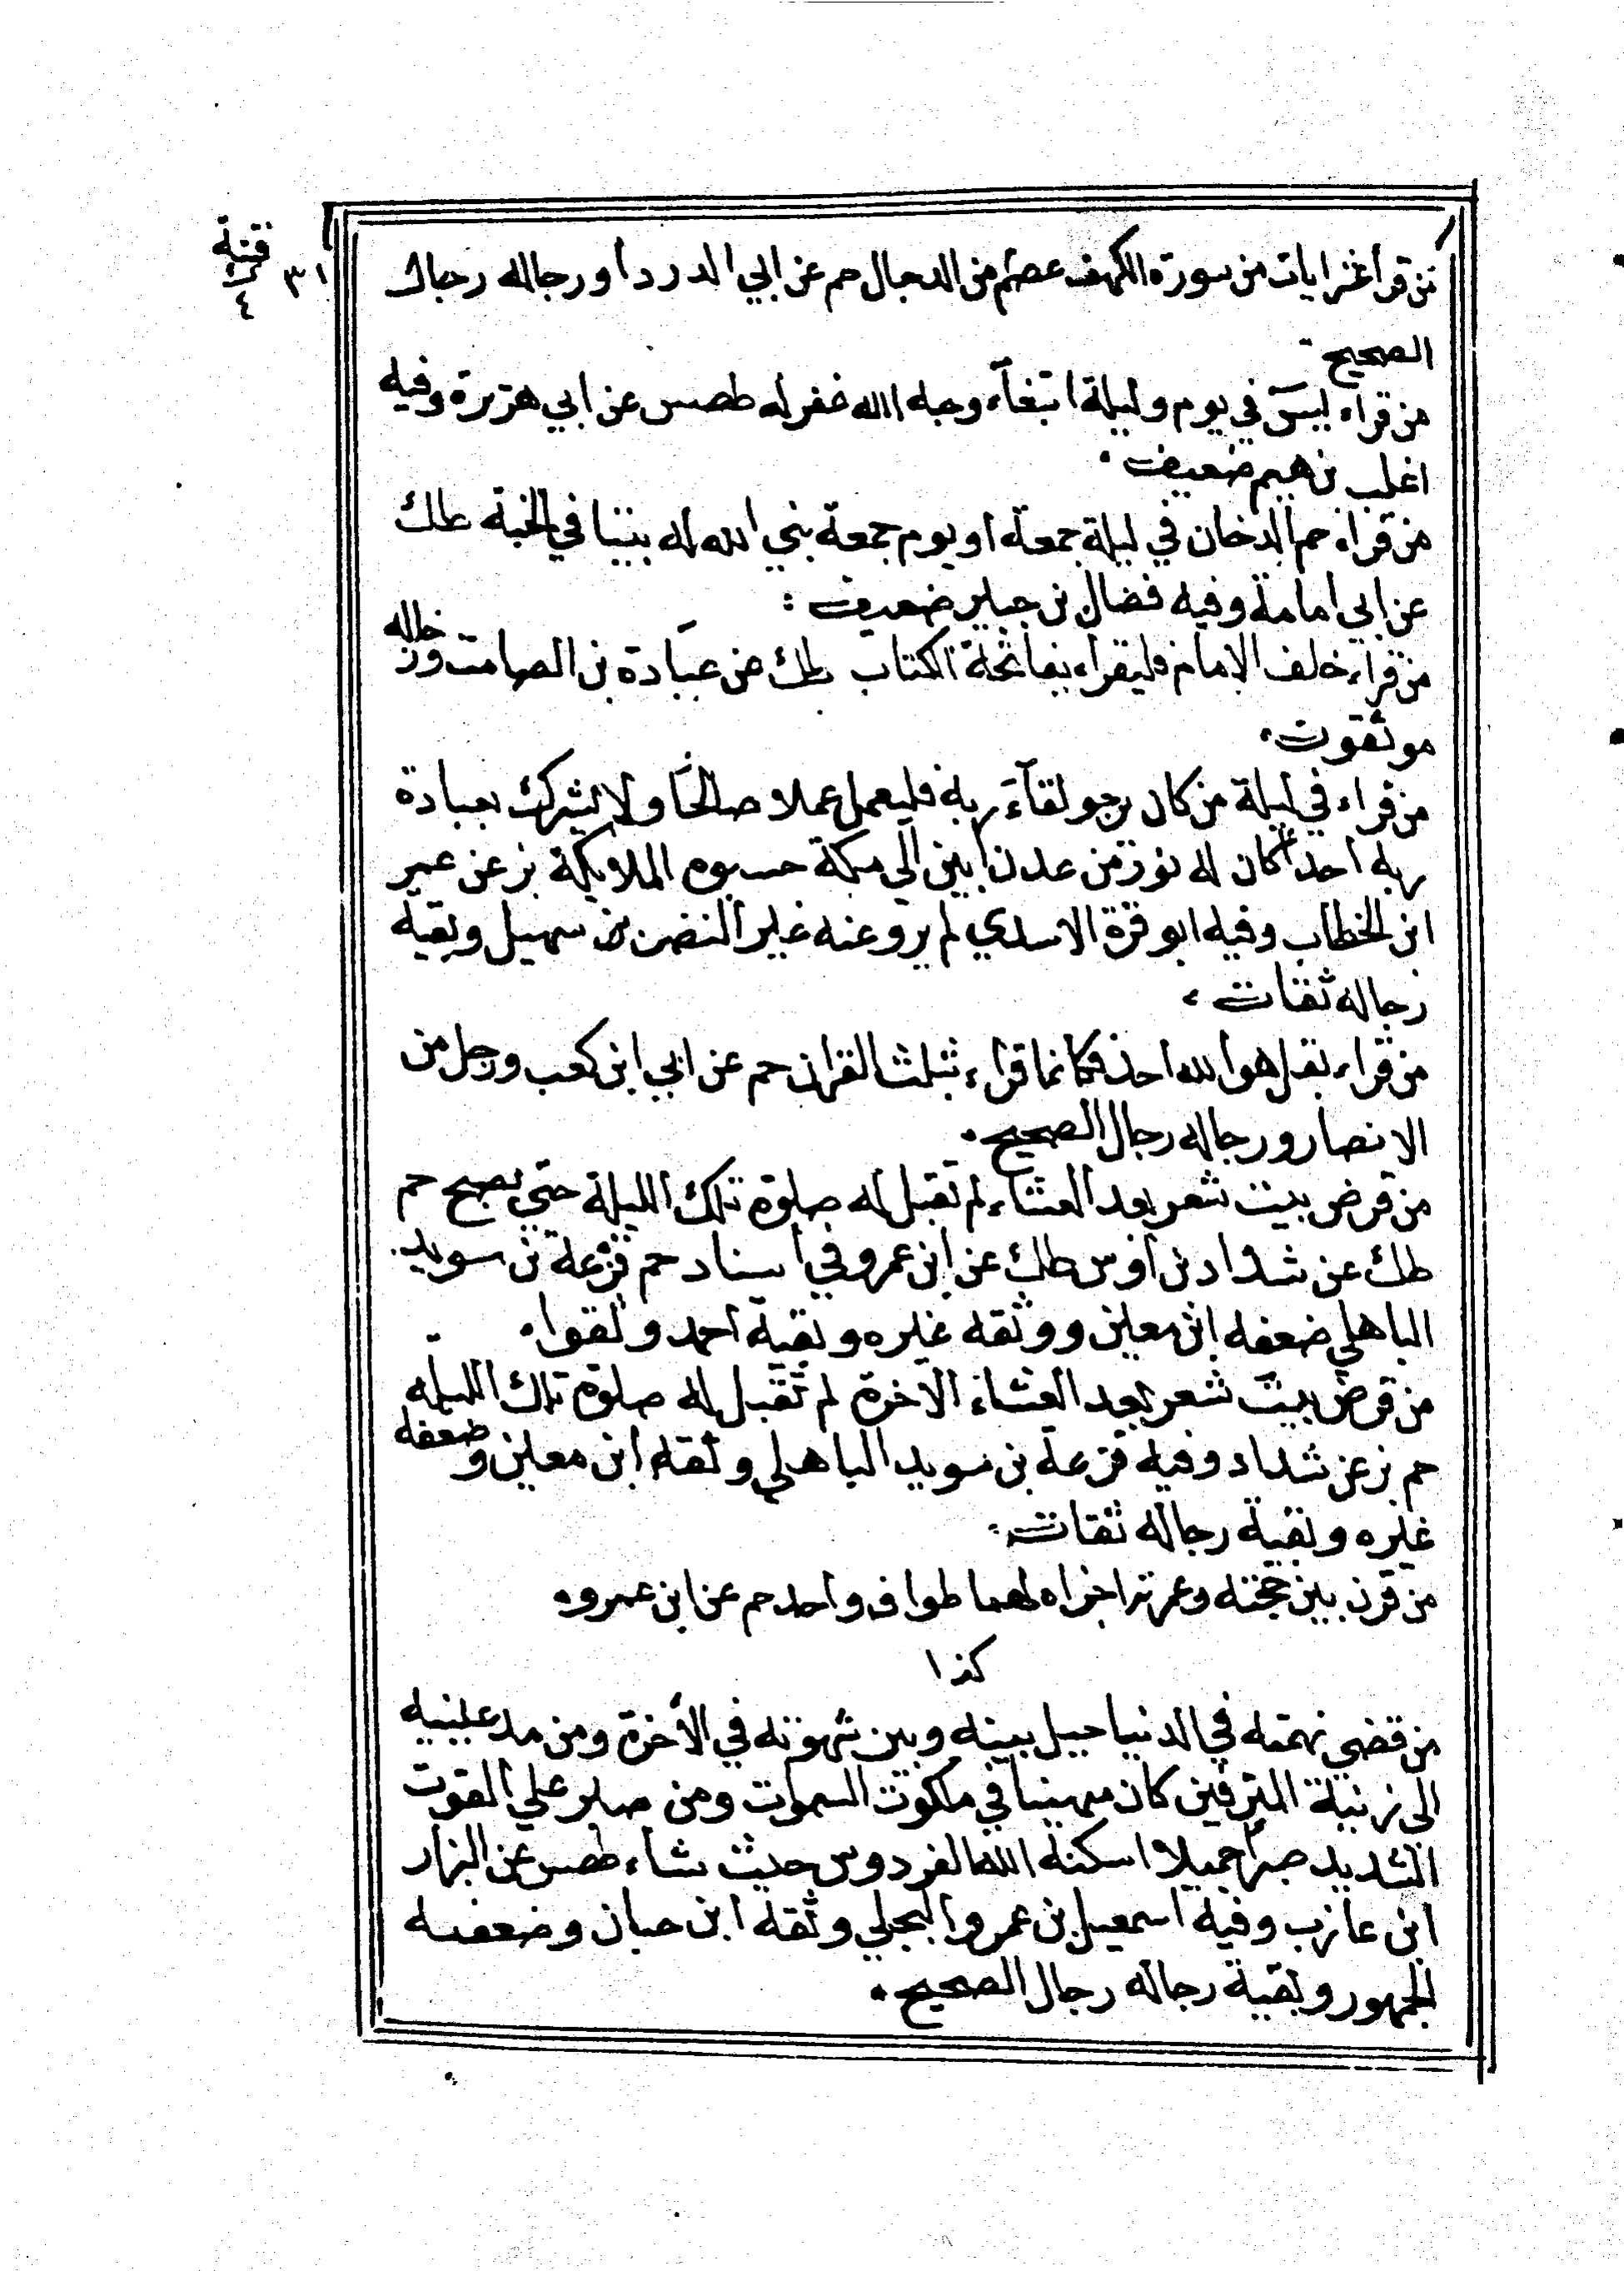 من قرأ عشر ايات من سورة الكهف عصم من الدجال حم عن ابي الدردا ورجاله رجال
الصحيح
من قراء يس في يوم وليلة ابتغاء وجه الله غفر له طصس عن ابي هريرة وفيه
اغلب بن هيم ضعيف
من قراء حم الدخان في ليلة جمعة او يوم جمعة بني الله له بيتا في الجنة طك
عن ابي امامة وفيه فضال بن جبير ضعيف
من قراء خلف الامام فليقراء بفاتحة الكتاب طك عن عبادة بن الصامت ورجاله
موثقون
من قراء في ليلة من كان يرجو لقاء ربه فليعمل عملا صالحا ولا يشرك بعبادة
ربه احدا كان له نور من عدن ابين الى مكة حسوه الملايكة بز عن عمر
ابن الخطاب وفيه ابو قرة الاسدي لم يرو عنه غير النضر بن سهيل وبقية
رجاله ثقات
من قراء بقل هو الله احد فكانما قراء بثلث القران حم عن ابي ابن كعب ورجل من
الانصار ورجاله رجال الصحيح
من قرض بيت شعر بعد العشاء لم تقبل له صلوة تلك الليلة حتي يصبح حم
طك عن شداد بن اوس طك عن ابن عمرو في اسناد حم قزعة بن سويد
الباهلي ضعفه ابن معين ووثقه غيره وبقية احمد وثقوا
من قرض بيت شعر بعد العشاء الاخرة لم تقبل له صلوة تلك الليله
حم بز عن شداد وفيه قزعة بن سويد الباهلي وثقه ابن معين وضعفه
غيره وبقية رجاله ثقات
من قرن بين حجته وعمرته اجزاه لهما طواف واحد حم عن ابن عمرو
كذا
من قضي نهمته في الدنيا حيل بينه وبين شهوته في الاخرة ومن مد عينيه
الى زينة المترفين كان مهينا في ملكوت السموات ومن صبر علي القوت
الشديد صبرا جميلا اسكنه الله الفردوس حيث شاء طصس عن البزار
ابن عازب وفيه اسمعيل بن عمرو البجلي وثقه ابن حبان وضعفه
الجمهور وبقية رجاله رجال الصحيح
٣١
٤